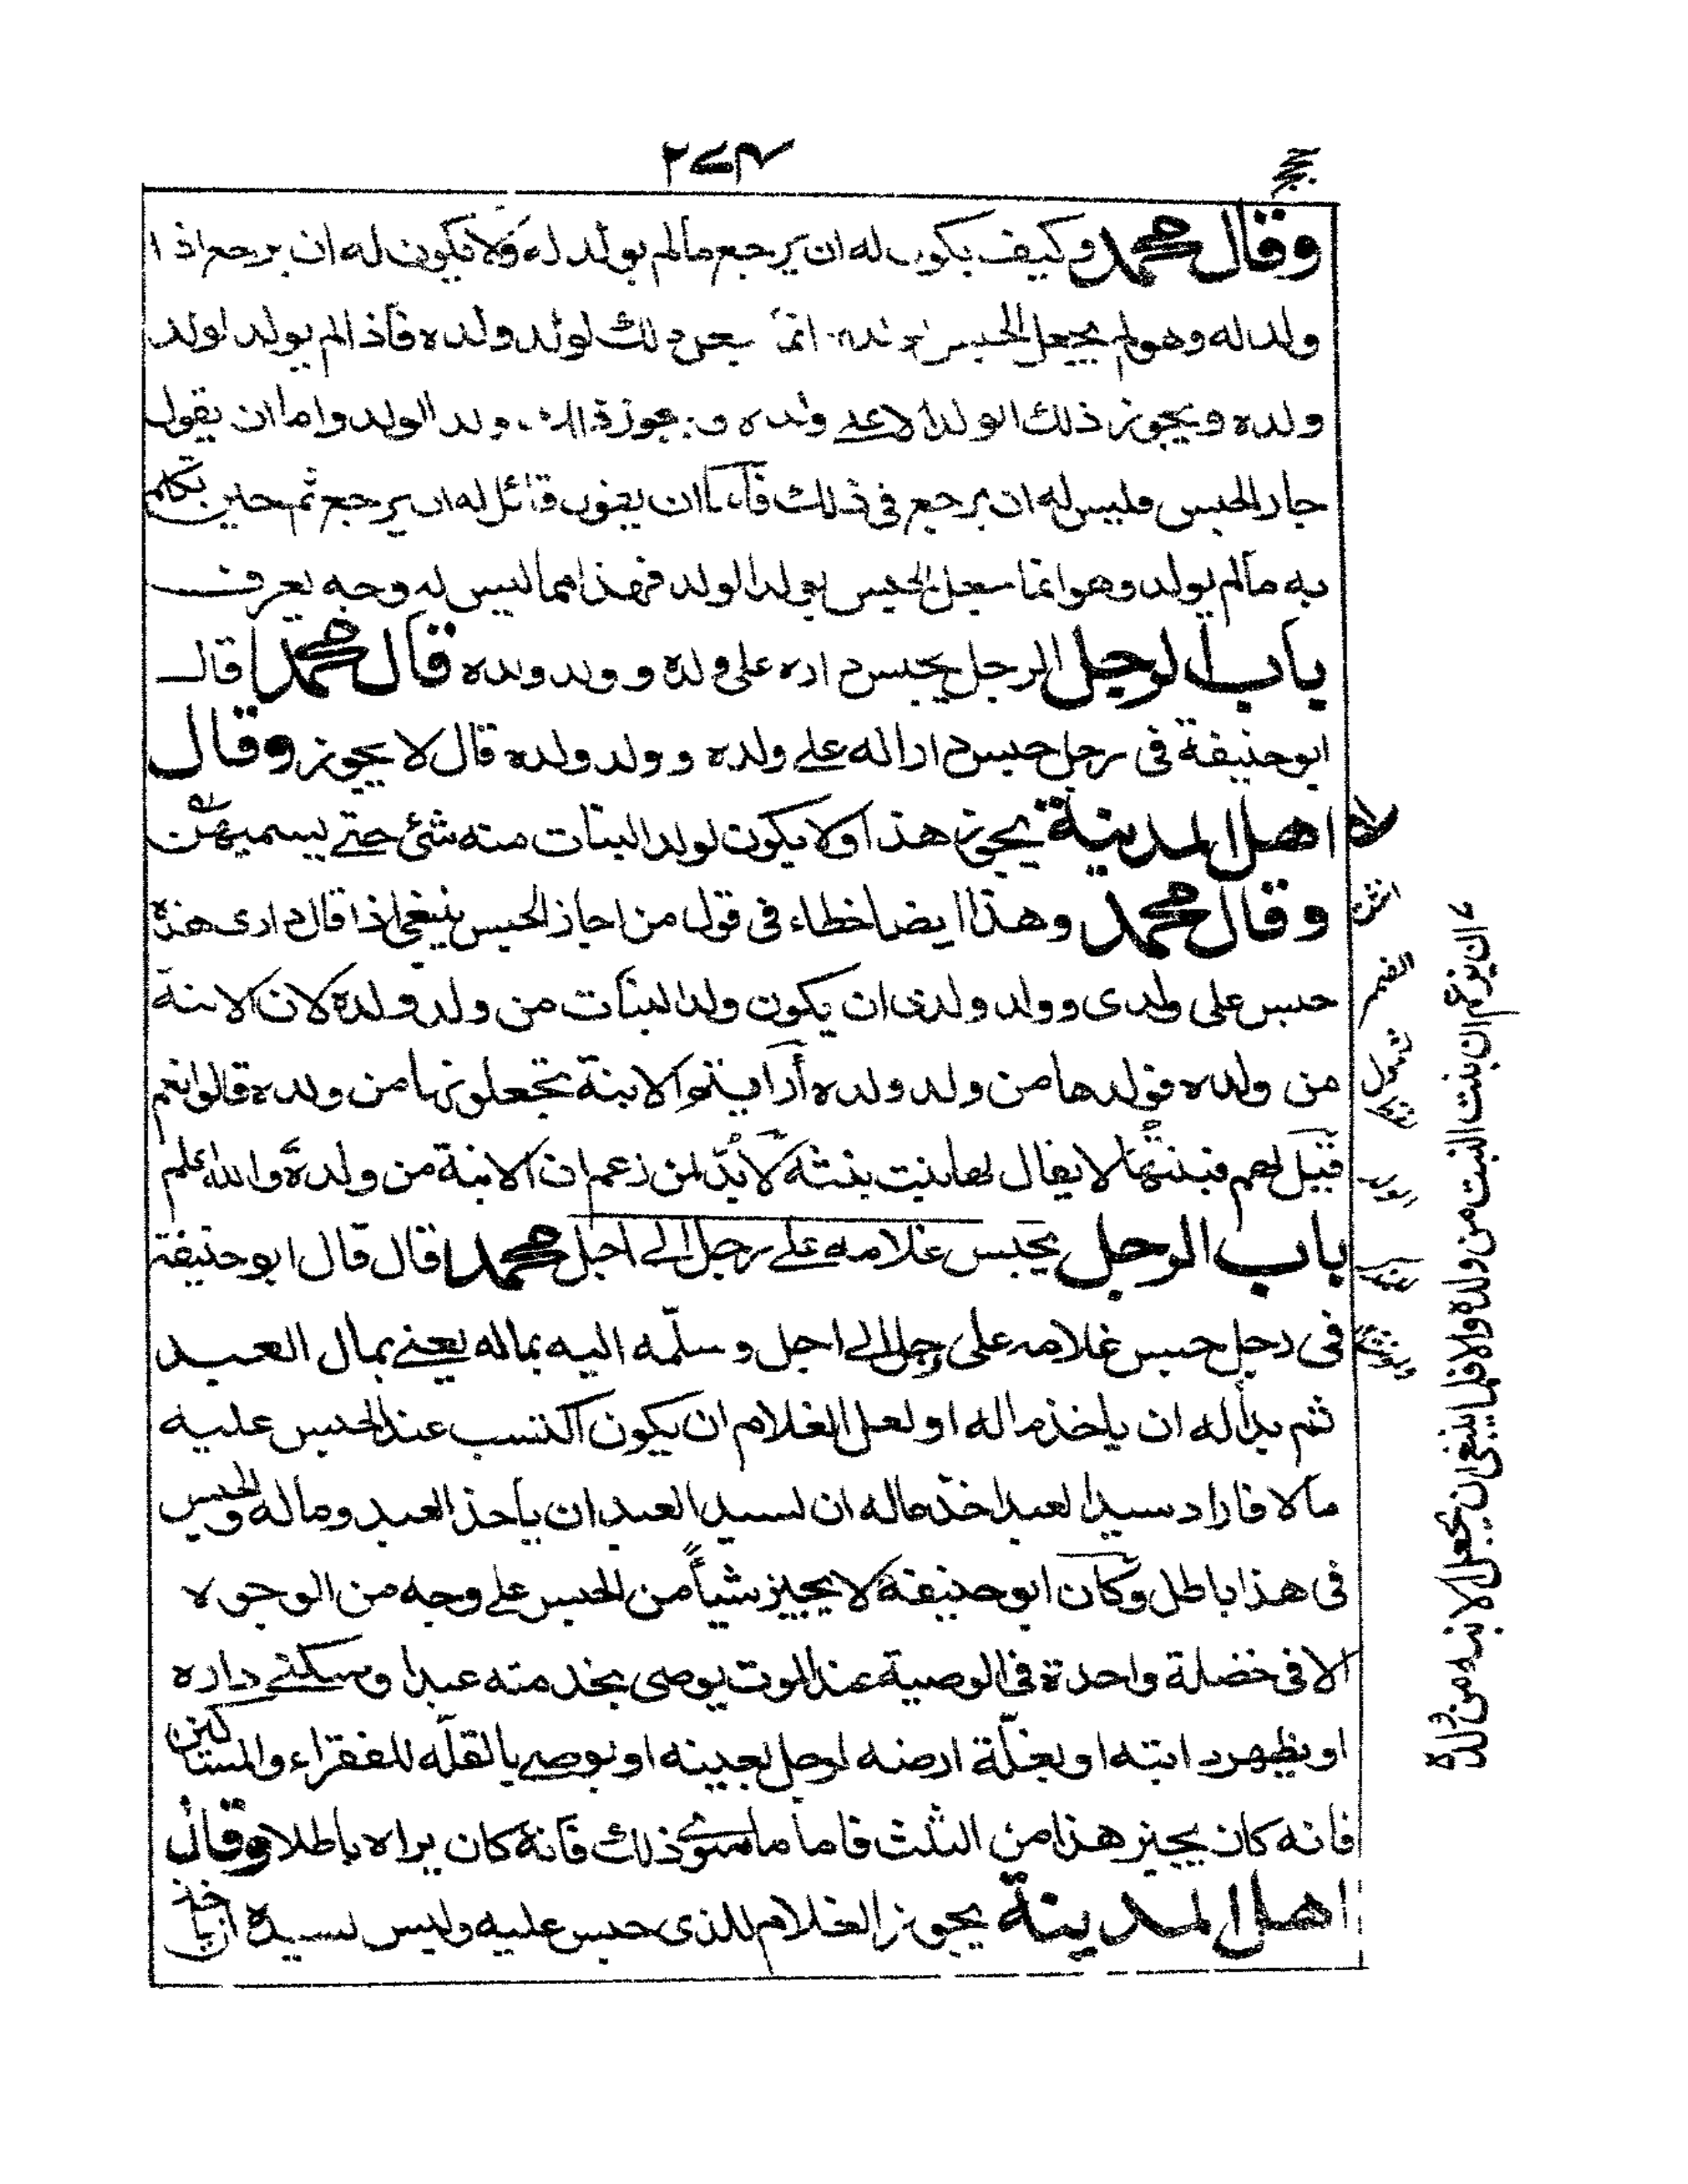 ٢٧٤
وقال محمد وكيف يكون له ان يرجع مالم يولد له ولا يكون له ان يرجع اذا
ولد له وهو لم يجعل الحبس انما ذلك لولد ولده فاذا لم يولد لولد
ولده ويجوز ذلك الولد لا على ولده ولد الولد واما ان يقول
جاز الحبس فليس له ان يرجع في ذلك فاما ان يقول قائل له ان يرجع ثم حين تكلم
به مالم يولد وهو انما يجعل الحبس لولد الولد فهذا مما ليس له وجه يعرف
باب الرجل الرجل يحبس داره على ولده وولد ولده قال محمد قال
ابوحنيفة فى رجل حبس دارا له على ولده وولد ولده قال لا يجوز وقال
اهل المدينة يجوز هذا ولا يكون لولد البنات منه شئ حتى يسميهن
وقال محمد وهذا ايضا خطاء فى قول من اجاز الحبس ينبغى اذا قال دارى هذه
حبس على ولدى وولد ولدى ان يكون ولد البنات من ولد ولده لان الابنة
من ولده فولدها من ولد ولده أرأيتم الابنة تجعلونها من ولده قالوا نعم
قيل لهم فبنتها لا يقال لها بنت بنته لا بد لمن زعم ان الابنة من ولده والله اعلم
باب الرجل يحبس غلامه على رجل الى اجل محمد قال قال ابوحنيفة
فى رجل حبس غلامه على رجل الى اجل وسلمه اليه بماله يعنى بمال العبد
ثم بدأ له ان ياخذ ماله او لعل الغلام ان يكون اكتسب عند الحبس عليه
مالا فاراد سيد العبد اخذ ماله ان لسيد العبد ان يأخذ العبد وماله والحبس
فى هذا باطل وكان ابوحنيفة لا يجيز شيأ من الحبس على وجه من الوجوه
الا فى خصلة واحدة فى الوصية عند الموت يوصى بخدمته عبدا وسكنى داره
او بظهر دابته او بغلة ارضه لرجل بعينه او يوصى بالغلة للفقراء والمساكين
فانه كان يجيز هذا من الثلث فاما ما سوى ذلك فانه كان يراه باطلا وقال
اهل المدينة يجوز الغلام للذى حبس عليه وليس لسيده ان ياخذ
ان يزعم ان بنت البنت من ولده والا فما ينبغى ان يجعل الابنة من ولده